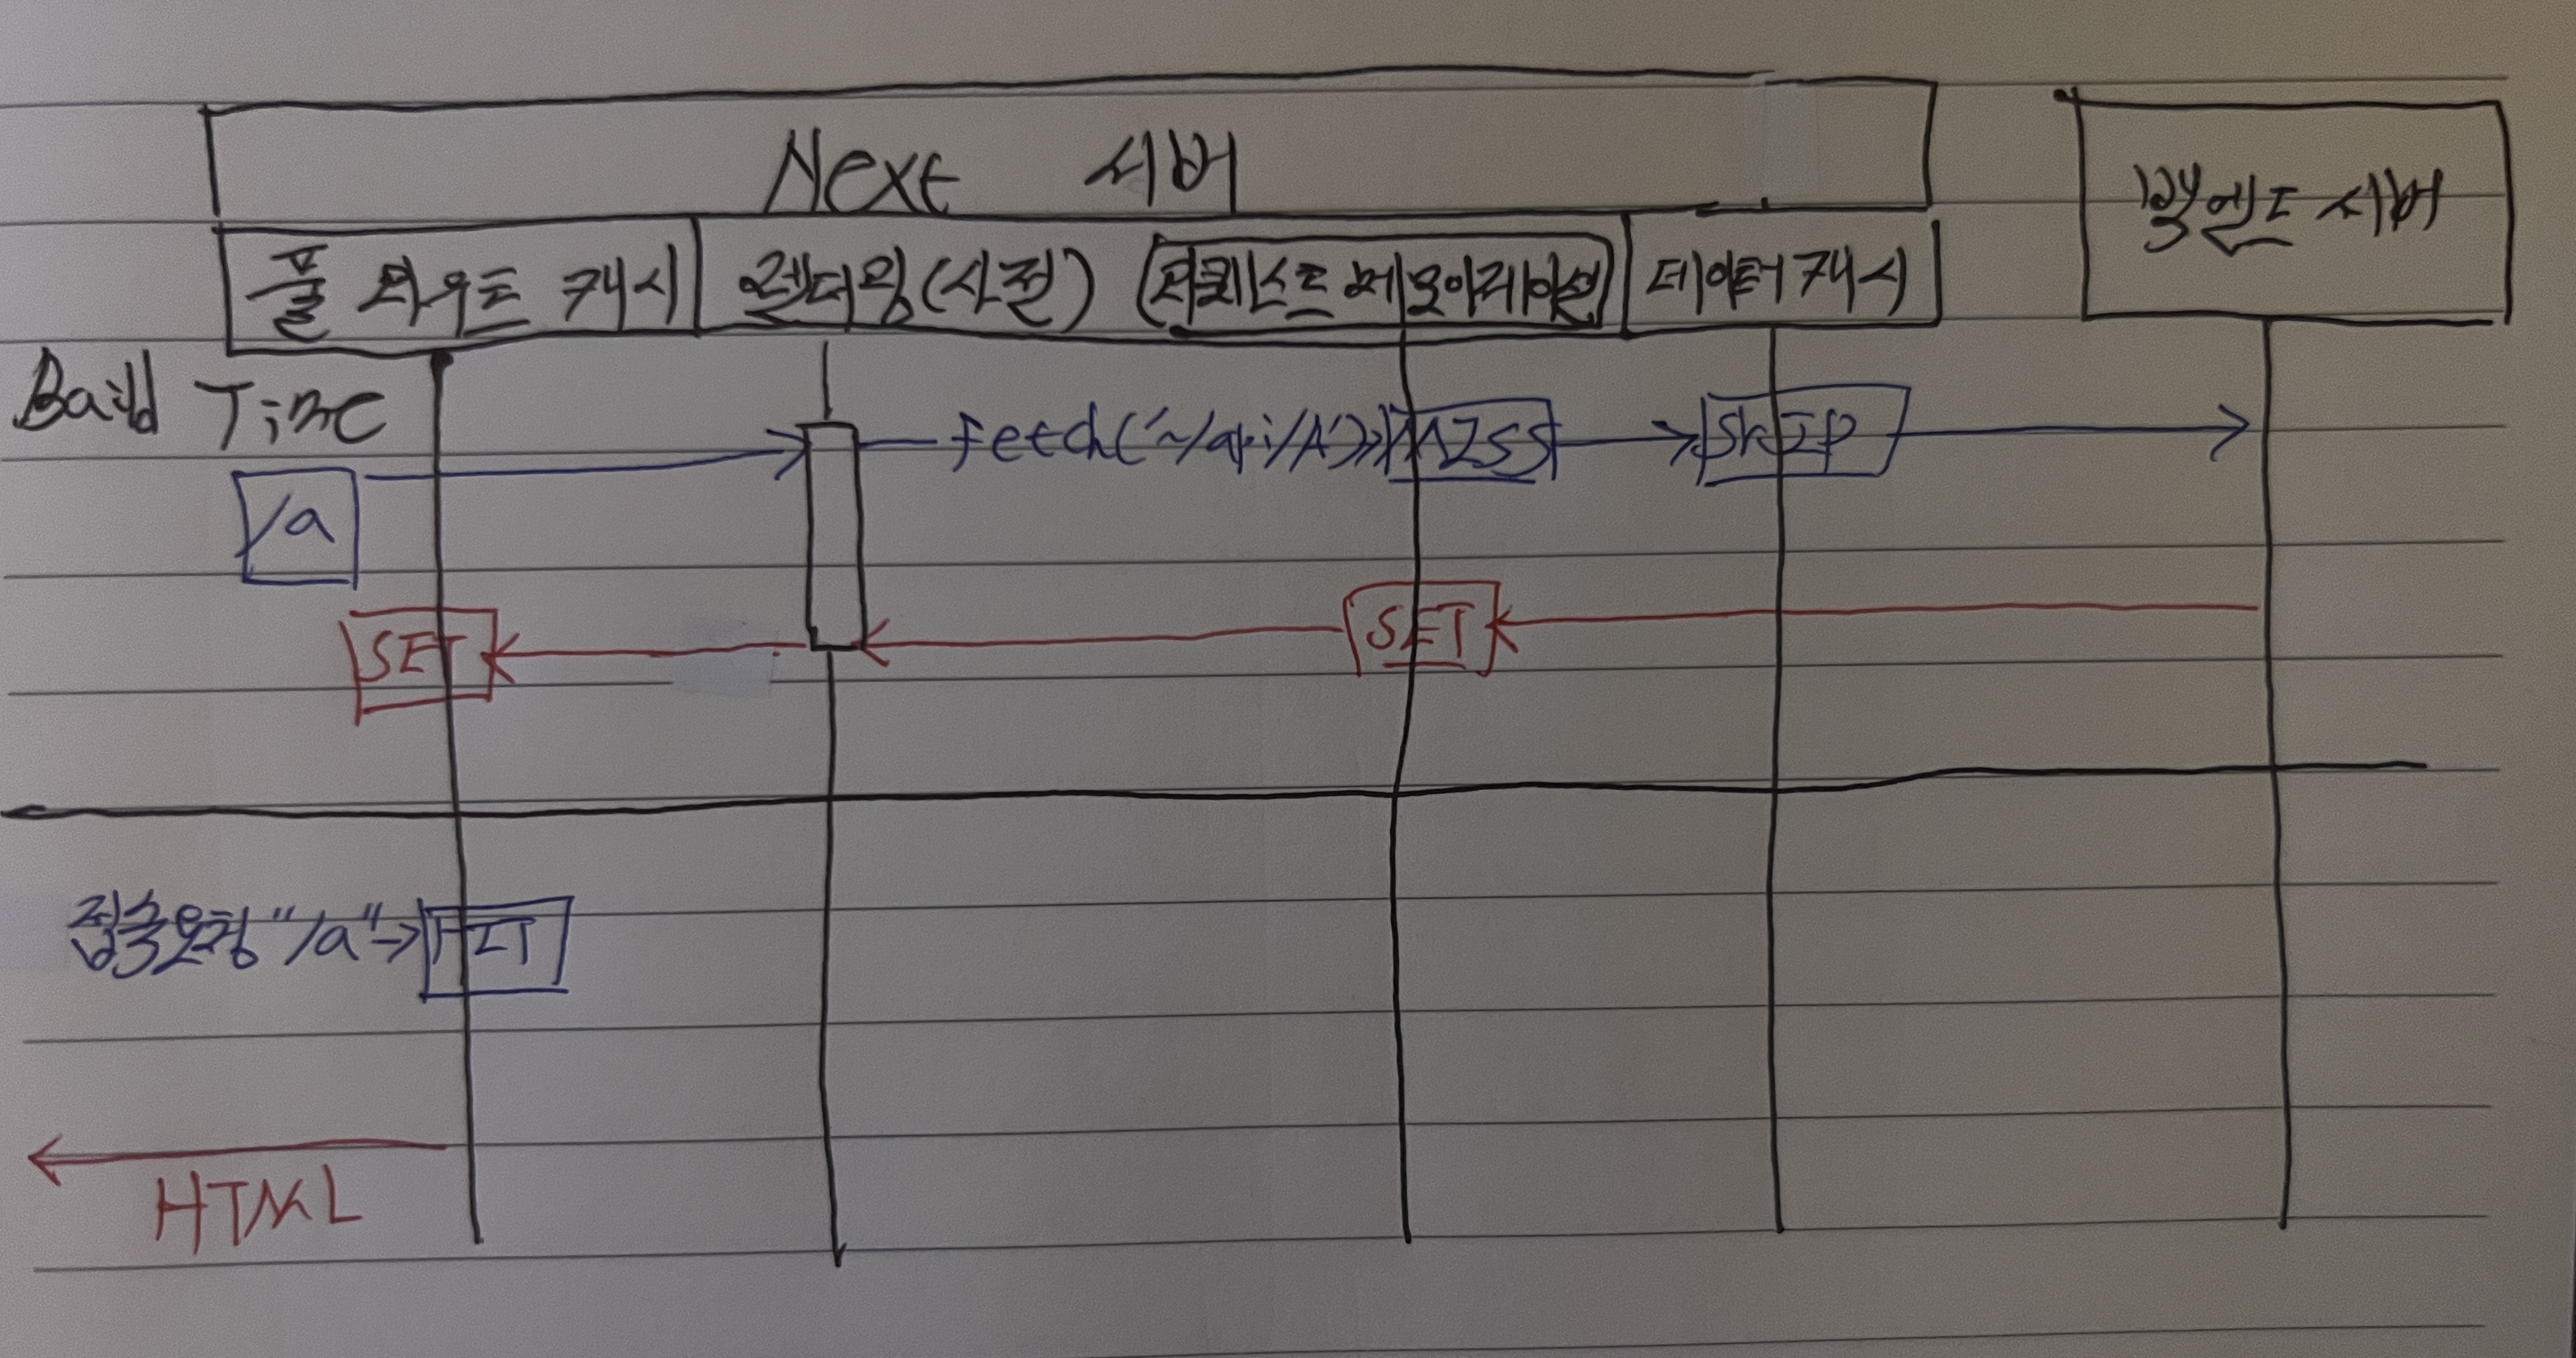 Next 서버
백엔드 서버
풀 라우트 캐시
렌더링(사전)
리퀘스트 메모이제이션
데이터 캐시
Build Time
/a
fetch('~/api/A')
MISS
SKIP
SET
SET
접속요청 "/a"
HIT
HTML